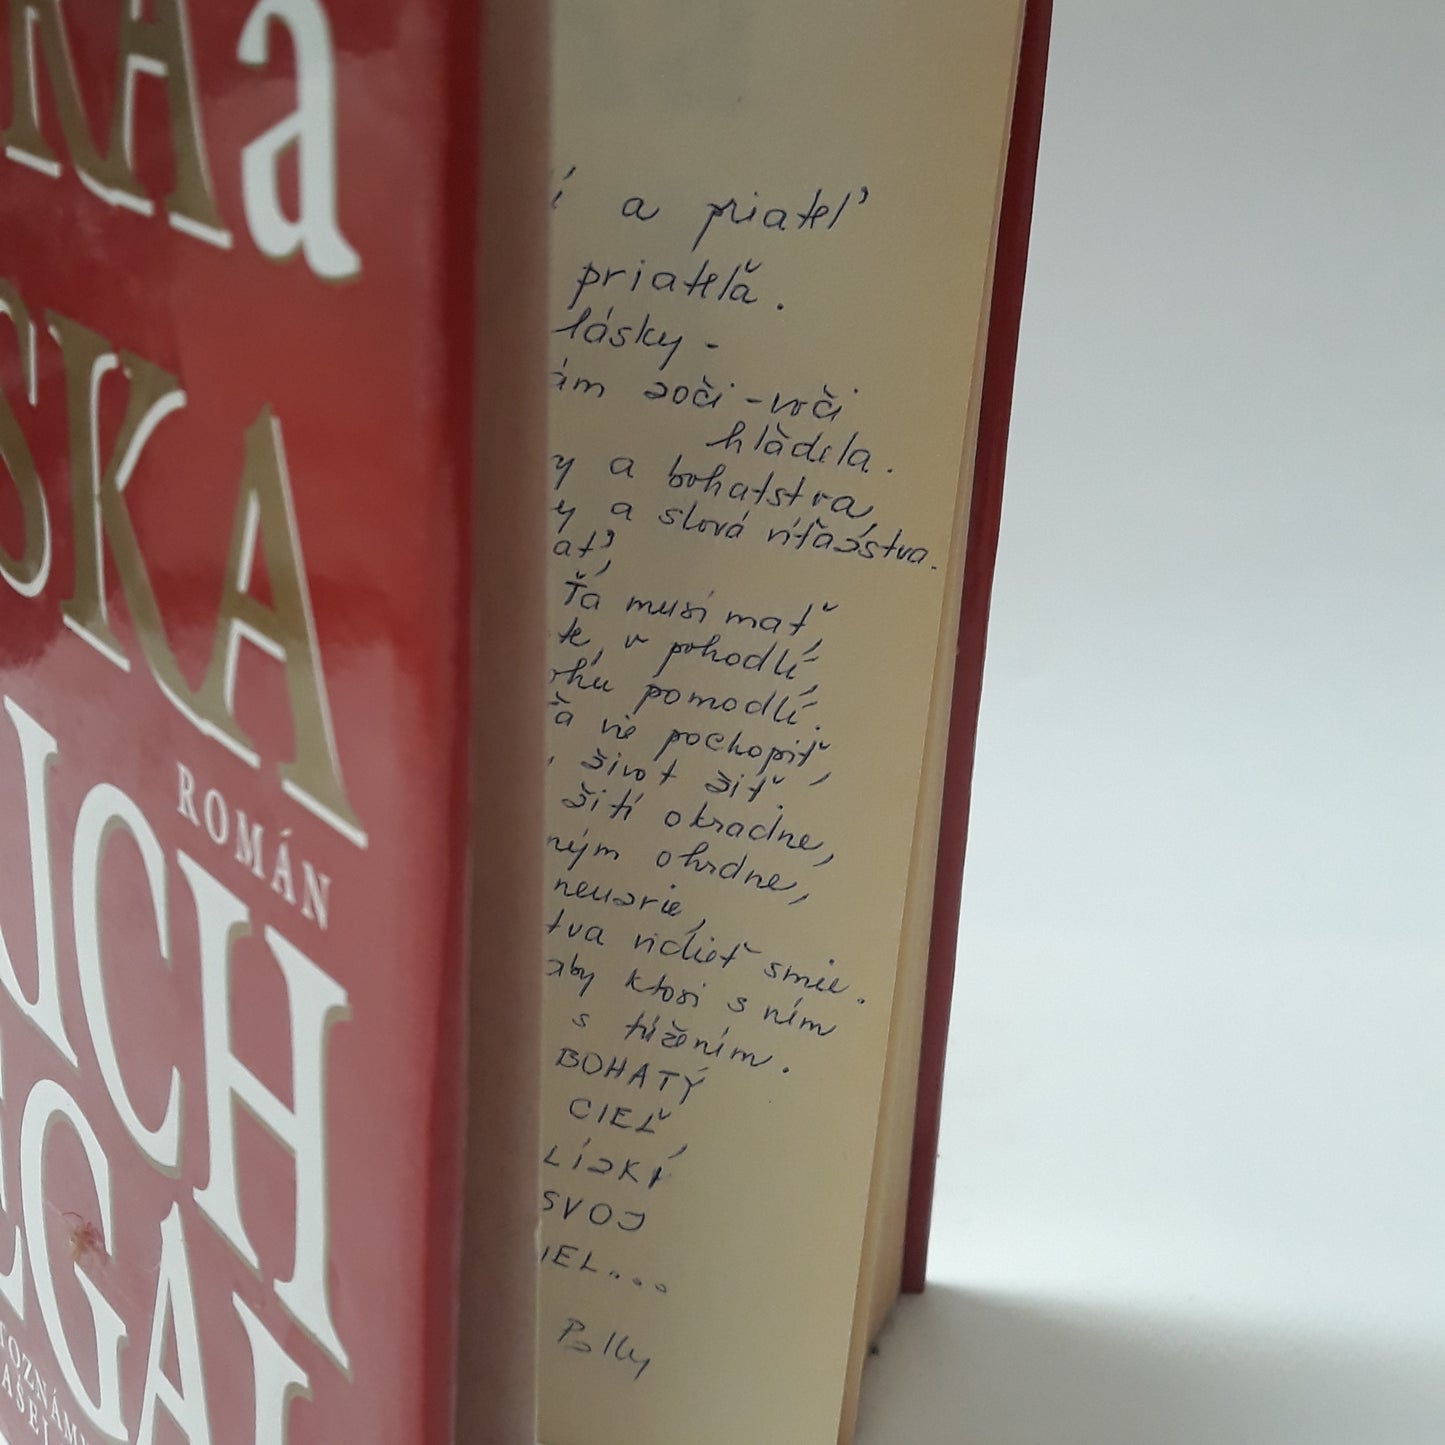 KA a
SKA
ROMÁN
UCH
EGAL
TOZNÁM
AŠEJ
í a priateľ
priateľa.
lásky -
ám zoči-voči
hľadela.
y a bohatstva,
y a slová víťazstva.
ať,
Ťa musí mať,
te, v pohodlí,
ohu pomodlí.
ťa vie pochopiť,
, život žiť.
žití okradne,
ným ohrdne,
neuzrie,
tva vidieť smie.
aby ktosi s ním
s túžením.
BOHATÝ
CIEĽ,
LÍZKI
SVOJ
IEL...
Polly